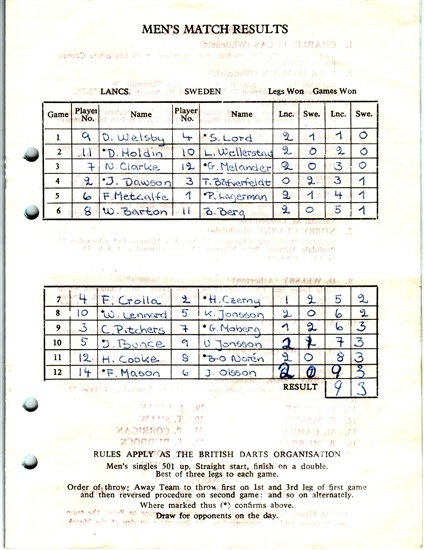 MEN'S MATCH RESULTS
LANCS. SWEDEN Legs Won Games Won
Game Player No. Name Player No. Name Lnc. Swe. Lnc. Swe.
1 9 D. Welsby 4 *S. Lord 2 1 1 0
2 11 *D. Holdin 10 L. Wellerstad 2 0 2 0
3 7 N. Clarke 12 *G. Melander 2 0 3 0
4 2 *J. Dawson 3 T. Båfverfeldt 0 2 3 1
5 6 F. Metcalfe 1 *P. Lagerman 2 1 4 1
6 8 W. Barton 11 B. Berg 2 0 5 1
7 4 F. Crolla 2 *H. Czerny 1 2 5 2
8 10 *W. Lennard 5 K. Jonsson 2 0 6 2
9 3 C. Pitchers 7 *G. Moberg 1 2 6 3
10 5 J. Bunce 9 U. Jonsson 2 1 7 3
11 12 H. Cooke 8 *B-O Norén 2 0 8 3
12 14 *F. Mason 6 J. Olsson 2 0 9 3
RESULT 9 3
RULES APPLY AS THE BRITISH DARTS ORGANISATION
Men's singles 501 up. Straight start, finish on a double.
Best of three legs to each game.
Order of throw: Away Team to throw first on 1st and 3rd leg of first game
and then reversed procedure on second game: and so on alternately.
Where marked thus (*) confirms above.
Draw for opponents on the day.